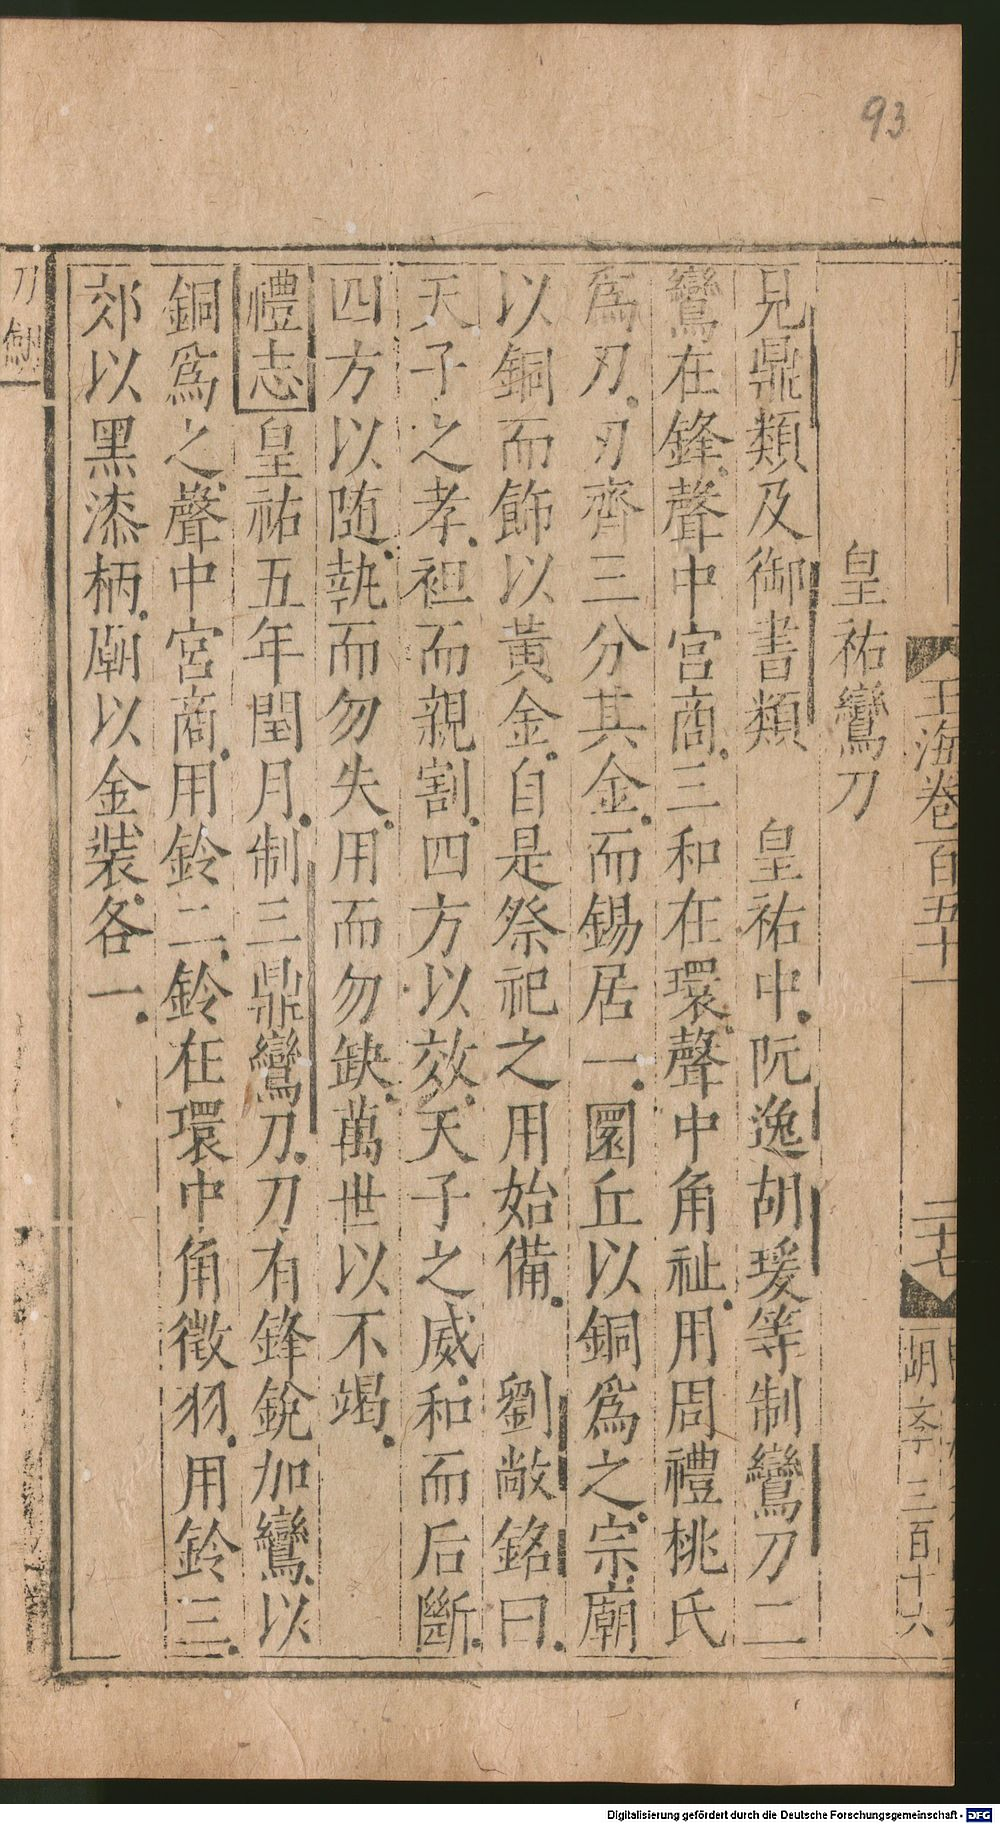 93
玉海卷百五十一
二十七
胡李三百十六
皇祐鸞刀
見鼎類及御書類　皇祐中阮逸胡瑗等制鸞刀二
鸞在鋒聲中宮商三和在環聲中角祉用周禮桃氏
爲刃刃齊三分其金而錫居一圜丘以銅爲之宗廟
以銅而飾以黃金自是祭祀之用始備　劉敞銘曰
天子之孝袒而親割四方以效天子之威和而后斷
四方以随執而勿失用而勿缺萬世以不竭
禮志皇祐五年閏月制三鼎鸞刀刀有鋒銳加鸞以
銅爲之聲中宮商用鈴二鈴在環中角徵羽用鈴三
郊以黑漆柄廟以金装各一
刀劔
Digitalisierung gefördert durch die Deutsche Forschungsgemeinschaft - DFG